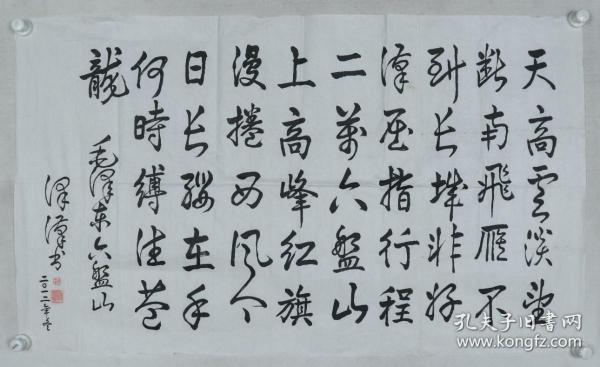 天高云淡望
断南飛雁不
到长城非好
漢屈指行程
二萬六盤山
上高峰红旗
漫捲西风今
日长缨在手
何時缚住苍
龍
毛泽东六盤山
泽漢书
二〇一二年冬
孔夫子旧书网
www.kongfz.com